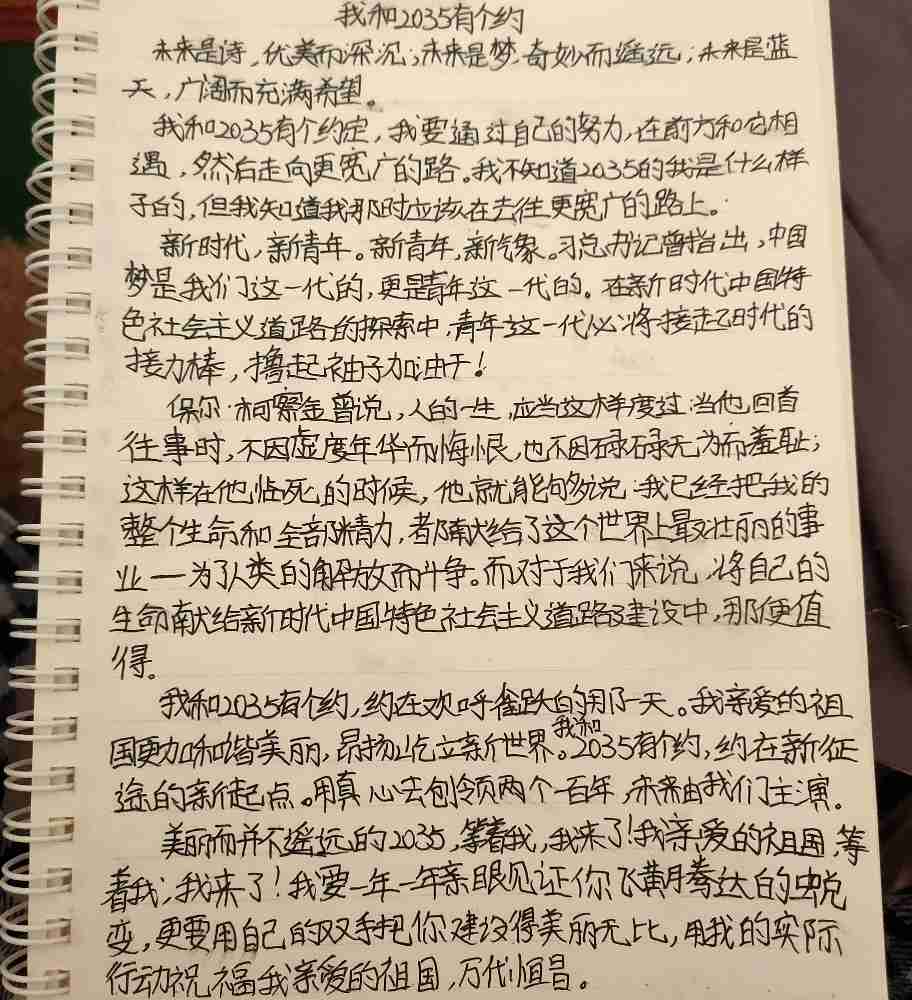 我和2035有个约
未来是诗,优美而深沉;未来是梦,奇妙而遥远;未来是蓝
天,广阔而充满希望。
我和2035有个约定,我要通过自己的努力,在前方和它相
遇,然后走向更宽广的路。我不知道2035的我是什么样
子的,但我知道我那时应该在去往更宽广的路上。
新时代,新青年。新青年,新气象。习总书记曾指出,中国
梦是我们这一代的,更是青年这一代的。在新时代中国特
色社会主义道路的探索中,青年这一代必将接起时代的
接力棒,撸起袖子加油干!
保尔·柯察金曾说,人的一生,应当这样度过:当他回首
往事时,不因虚度年华而悔恨,也不因碌碌无为而羞耻;
这样在他临死的时候,他就能够说:我已经把我的
整个生命和全部精力,都献给了这个世界上最壮丽的事
业——为了人类的解放而斗争。而对于我们来说,将自己的
生命献给新时代中国特色社会主义道路建设中,那便值
得。
我和2035有个约,约在欢呼雀跃的那一天。我亲爱的祖
国更加和谐美丽,昂扬屹立新世界。我和2035有个约,约在新征
途的新起点。用真心去创领两个一百年,未来由我们主演。
美丽而并不遥远的2035,等着我,我来了!我亲爱的祖国,等
着我,我来了!我要一年一年亲眼见证你飞黄腾达的蜕
变,更要用自己的双手把你建设得美丽无比,用我的实际
行动祝福我亲爱的祖国,万代恒昌。